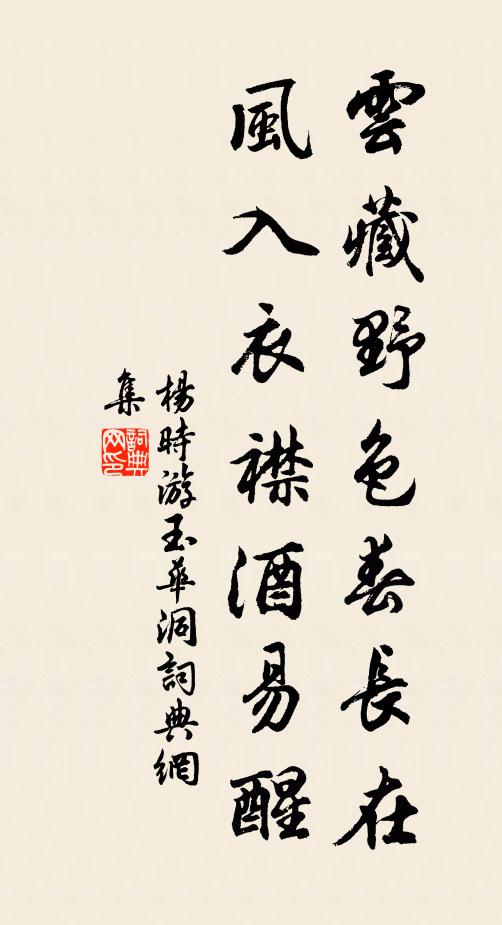 雲藏野色春長在
風入衣襟酒易醒
楊時游玉華洞詞典網
集
詞典网印